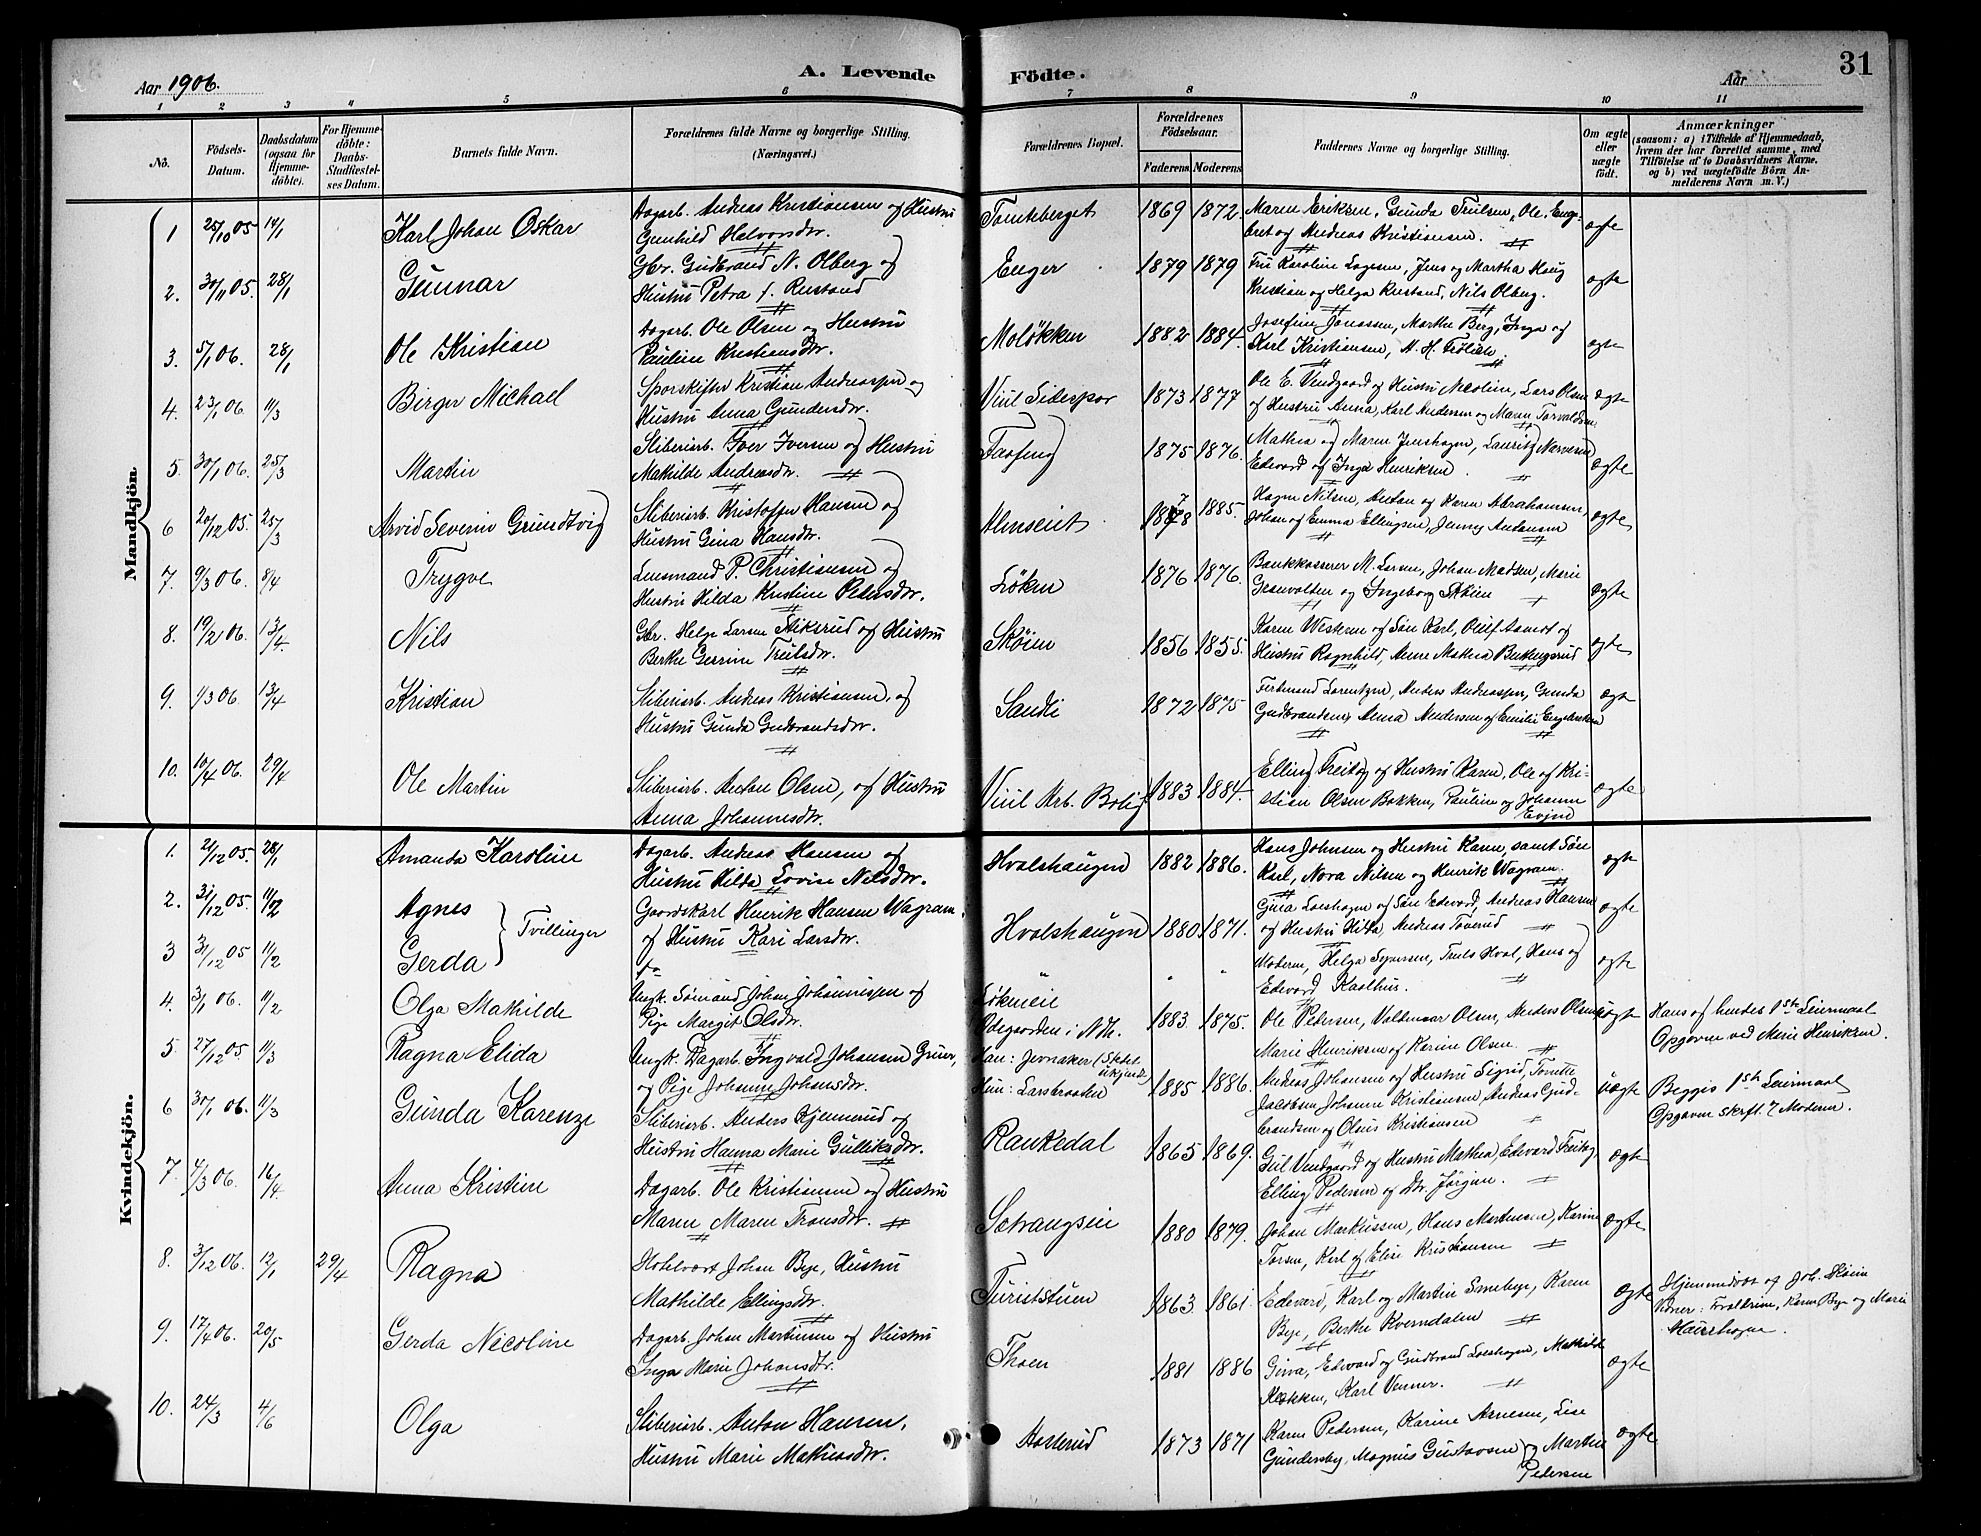 Aar 1906.
A. Levende Födte.
Aar
31
1 2 3 4 5 6 7 8 9 10 11
No.
Födsels-Datum.
Daabsdatum (ogsaa for Hjemmedöbte).
For Hjemmedöbte: Daabs-Stadfæstelses Datum.
Barnets fulde Navn.
Forældrenes fulde Navne og borgerlige Stilling. (Næringsvei.)
Forældrenes Bopæl.
Forældrenes Födselsaar.
Faderens Moderens
Faddernes Navne og borgerlige Stilling.
Om ægte eller uægte födt.
Anmærkninger
(saasom: a) i Tilfælde af Hjemmedaab, hvem der har forrettet samme, med Tilföielse af to Daabsvidners Navne. og b) ved uægtefödte Börn Anmelderens Navn m.V.)
Mandkjön.
1 25/10 05 14/1 Karl Johan Oskar
Dagarb. Andreas Kristiansen og Hustru
Gunhild Halvorsdr.
Tomteberget 1869 1872
Maren Eriksen, Gunda Trulsen, Ole, Enge-
bret og Andreas Kristiansen.
ægte
2. 30/11 05. 28/1 Gunnar
Gbr. Gudbrand N. Olberg og
Hustru Petra f. Rustand
Enger 1879 1879
Fru Karoline Lagesen, Jens og Martha Haug
Kristian og Helga Rustand, Nils Olberg.
ægte
3. 5/1 06. 28/1 Ole Kristian
Dagarb. Ole Olsen og Hustru
Pauline Kristiansdr.
Moløkken 1882 1884.
Josefine Jonassen, Marthe Berg, Inga og
Karl Kristiansen,
ægte
4. 23/1 06. 11/3 Birger Michael
Sporskifter Kristian Andreassen og
Hustru Anna Gundersdr.
Viul Sidespor 1873 1877
Ole E. Vendgaard og Hustru Nicoline, Lars Olsen
og Hustru Anna, Karl Andersen og Maren Torvaldsen
ægte
5. 30/1 06. 25/3 Martin
Sliberiarb. Iver Iversen og Hustru
Mathilde Andreasdr.
1875 1876.
Mathea og Maren Jenshagen, Lauritz Narvesen
Edevard og Inga Henriksen.
ægte
6 20/12 05. 25/3 Arvid Severin Grundtvig
Sliberiarb. Kristoffer Hansen og
Hustru Gina Hansdr.
Almseiet 1878 1885.
Hagen Nilsen, Anton og Karen Abrahamsen,
Johan og Emma Ellingsen, Jenny Antonsen
ægte
7. 9/3 06. 8/4 Trygve
Lensmand P. Christiansen og
Hustru Hilda Kristine Pedersdr.
Løken 1876 1876.
Bankkasserer M. Larsen, Johan Madsen, Marie
Granvolden og Ingeborg Skøien
ægte
8. 19/2 06. 13/4 Nils
Gbr. Helge Larsen Stiksrud og Hustru
Berthe Gerrine Trulsdr.
Skøien 1856 1855.
Karen Western og Søn Karl, Oluf Aamot og
Hustru Ragnhild, Anne Mathea Buttingsrud
ægte
9. 1/3 06. 13/4 Kristian
Sliberiarb. Andreas Kristiansen, og
Hustru Gunda Gudbrandsdr.
Sandli 1872 1875
Ferdinand Lorentzen, Anders Andreassen, Gunda
Gudbrandsen, Anna Andersen og Emilie Engebretsen
ægt
10. 10/4 06. 29/4 Ole Martin
Sliberiarb. Anton Olsen, og Hustru
Anna Johannesdr.
Viul Arb. Bolig 1883 1884.
Elling Freitag og Hustru Karen, Ole og Kri-
stian Olsen Bakken, Pauline og Johanne
Evjend
ægte
Kvindekjön.
1. 2/12 05. 28/1 Amanda Karoline
Dagarb. Andreas Hansen og
Hustru Hilda Lovise Nilsdr.
Hvalshaugen 1882 1886.
Hans Johnsen og Hustru Karen, samt Søn
Karl, Nora Nilsen og Henrik Wagram.
ægte
2. 31/12 05. 11/2 Agnes
3 31/12 05 11/2 Gerda
Tvillinger
Gaardskarl Henrik Hansen Wagram.
og Hustru Kari Larsdr.
Hvalshaugen 1880 1871.
Gina Loeshagen og Søn Edevard, Andreas Hansen
og Hustru Hilda, Andreas Toverud
ægte
Moderen, Helga Syversen, Truls Hval, Hans og
Edevard Kaslhus.
ægte
4. 3/1 06. 11/2 Olga Mathilde
Ungk. Sømand Johan Johannessen og
Pige Margit Olsdr.
Løkneie
Ødegaarden i Ndh. 1883. 1875.
Ole Pedersen, Valdemar Olsen, Anders Olsen
Marie Henriksen og Karine Olsen.
uægte
Hans og hendes 1ste Leiermaal
Opgaven ved Marie Henriksen.
5 27/12 05. 11/3 Ragna Elida
Ungk. Dagarb. Ingvald Johansen Gruer,
og Pige Johanne Johansdr.
Han: Jevnaker
Hun: Larsbraaten 1885 1886.
Andreas Johansen og Hustru Sigrid, Tomine
Jacobsen Johanne Kristiansen, Andreas Gud-
brandsen og Olaus Kristiansen
uægte
Begges 1ste Leiermaal
Opgaven skrftl. f. Moderen.
6 30/1 06. 11/3 Gunda Karenze
Sliberiarb. Anders Hjemmerud og
Hustru Hanna Marie Gulliksdr.
Rankedal 1865 1869.
Gul. Vendgaard og Hustru Mathea, Edevard Freitag,
Elling Pedersen og Dtr. Jørgine.
ægte
7. 4/3 06. 16/4 Anna Kristine
Dagarb. Ole Kristiansen og Hustru
Maren Maren Tronsdr.
Sotrangseie 1880 1879.
Johan Markussen, Hans Martinsen, Karine
Torsen, Karl og Elise Kristiansen
ægte
8. 3/12 06. 12/1 29/4 Ragna
Hotelvært Johan Bye, Hustru
Mathilde Ellingsdr.
Turiststuen 1863 1861.
Edevard, Karl og Martin Smebye, Karen
Bye, Berthe Kverndalen
ægte
Hjemmedøbt af Joh. Skøien
Vidner: Forældrene, Karen Bye og Marie
9. 17/4 06. 20/5 Gerda Nicoline
Dagarb. Johan Martinsen og Hustru
Inga Marie Johansdtr.
Thoen 1881 1886
Gina, Edevard og Gudbrand Loeshagen, Mathilde
Kløkken, Karl Venner.
ægte
10. 24/3 4/6 Olga
Sliberiarb. Anton Hansen,
Hustru Marie Mathiasdr.
Aasterud 1873 1871
Karen Pedersen, Karine Arnesen, Lise
Gundersby, Magnus Gustavsen og Martin
Pedersen
ægte